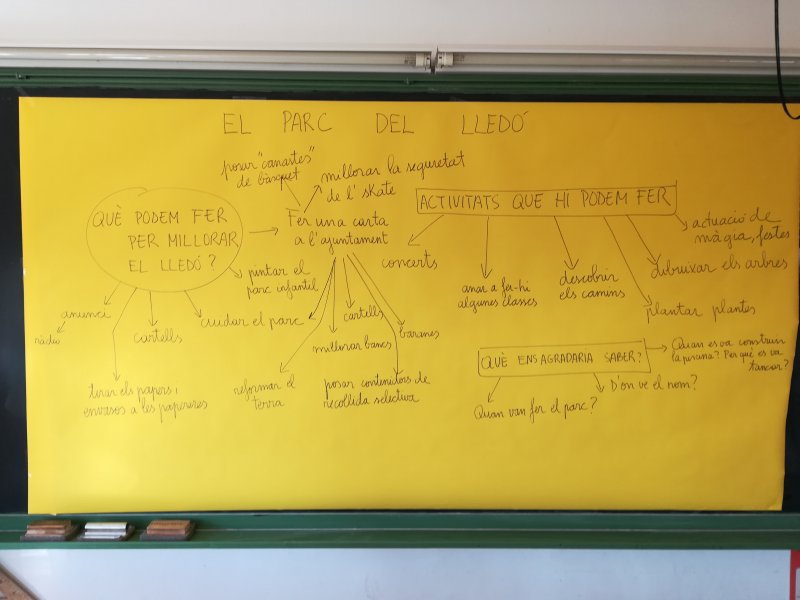 EL PARC DEL LLEDÓ
QUÈ PODEM FER
PER MILLORAR
EL LLEDÓ?
anunci
ràdio
tirar els papers i
envasos a les papereres
cartells
cuidar el parc
pintar el
parc infantil
Fer una carta
a l'ajuntament
posar "canastes"
de bàsquet
millorar la seguretat
de l'skate
reformar el
terra
millorar bancs
cartells
posar contenidors de
recollida selectiva
baranes
ACTIVITATS QUE HI PODEM FER
concerts
anar a fer-hi
algunes classes
descobrir
els camins
plantar plantes
dibuixar els arbres
actuació de
màgia, festes
QUÈ ENS AGRADARIA SABER?
Quan van fer el parc?
D'on ve el nom?
Quan es va construir
la piscina? Per què es va
tancar?